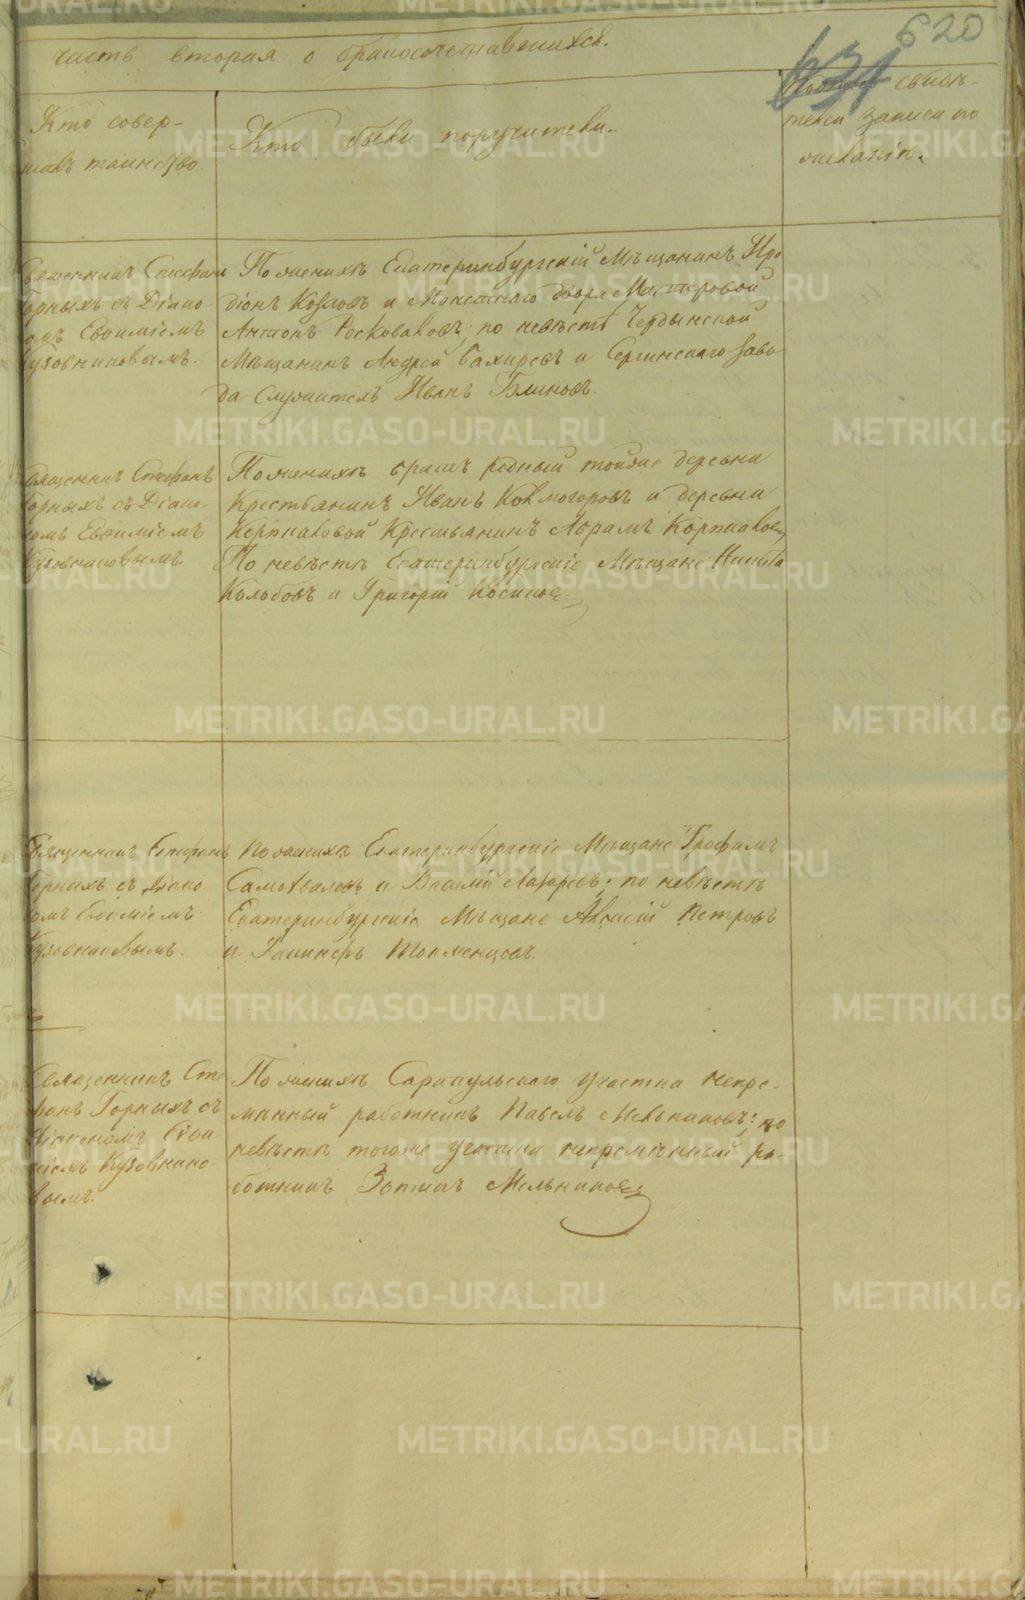 620
631
часть вторая о бракосочетавшихся.
Кто совер-
шалъ таинство.
Кто были поручители.
свидѣ-
тели записи по
желанію.
Священникъ Стефанъ
Горныхъ съ Діако-
омъ Евѳиміемъ
Кузовниковымъ.
По женихѣ Екатеринбургскій Мѣщанинъ Иро
діонъ Козловъ и Монетнаго двора Мастеровой
Антонъ по невѣстѣ Чердынской
Мѣщанинъ Андрей Бахиревъ и Сергинскаго Заво
да Служитель Иванъ Блиновъ.
Священникъ Стефанъ
Горныхъ съ Діако-
номъ Евѳиміемъ
Кузовниковымъ.
По женихѣ братъ родный тойже деревни
Крестьянинъ Иванъ Колмогоровъ и деревни
Корпаковой Крестьянинъ Абрамъ Корпаковъ
По невѣстѣ Екатеринбургскіе Мѣщане Никита
Колобовъ и Григорій Косиковъ.
Священникъ Стефанъ
Горныхъ съ Діако-
омъ Евѳиміемъ
Кузовниковымъ.
По женихѣ Екатеринбургскіе Мѣщане Трофимъ
Самохваловъ и Василій Лазаревъ; по невѣстѣ
Екатеринбургскіе Мѣщане Петровъ
и Топменцовъ.
Священникъ Сте
фанъ Горныхъ съ
Діакономъ Евѳи-
міемъ Кузовнико-
вымъ.
По женихѣ Сарапульскаго участка непре-
мѣнный работникъ Павелъ Мельниковъ; по
невѣстѣ тогоже участка непремѣнный ра-
ботникъ Зотикъ Мельниковъ
METRIKI.GASO-URAL.RU